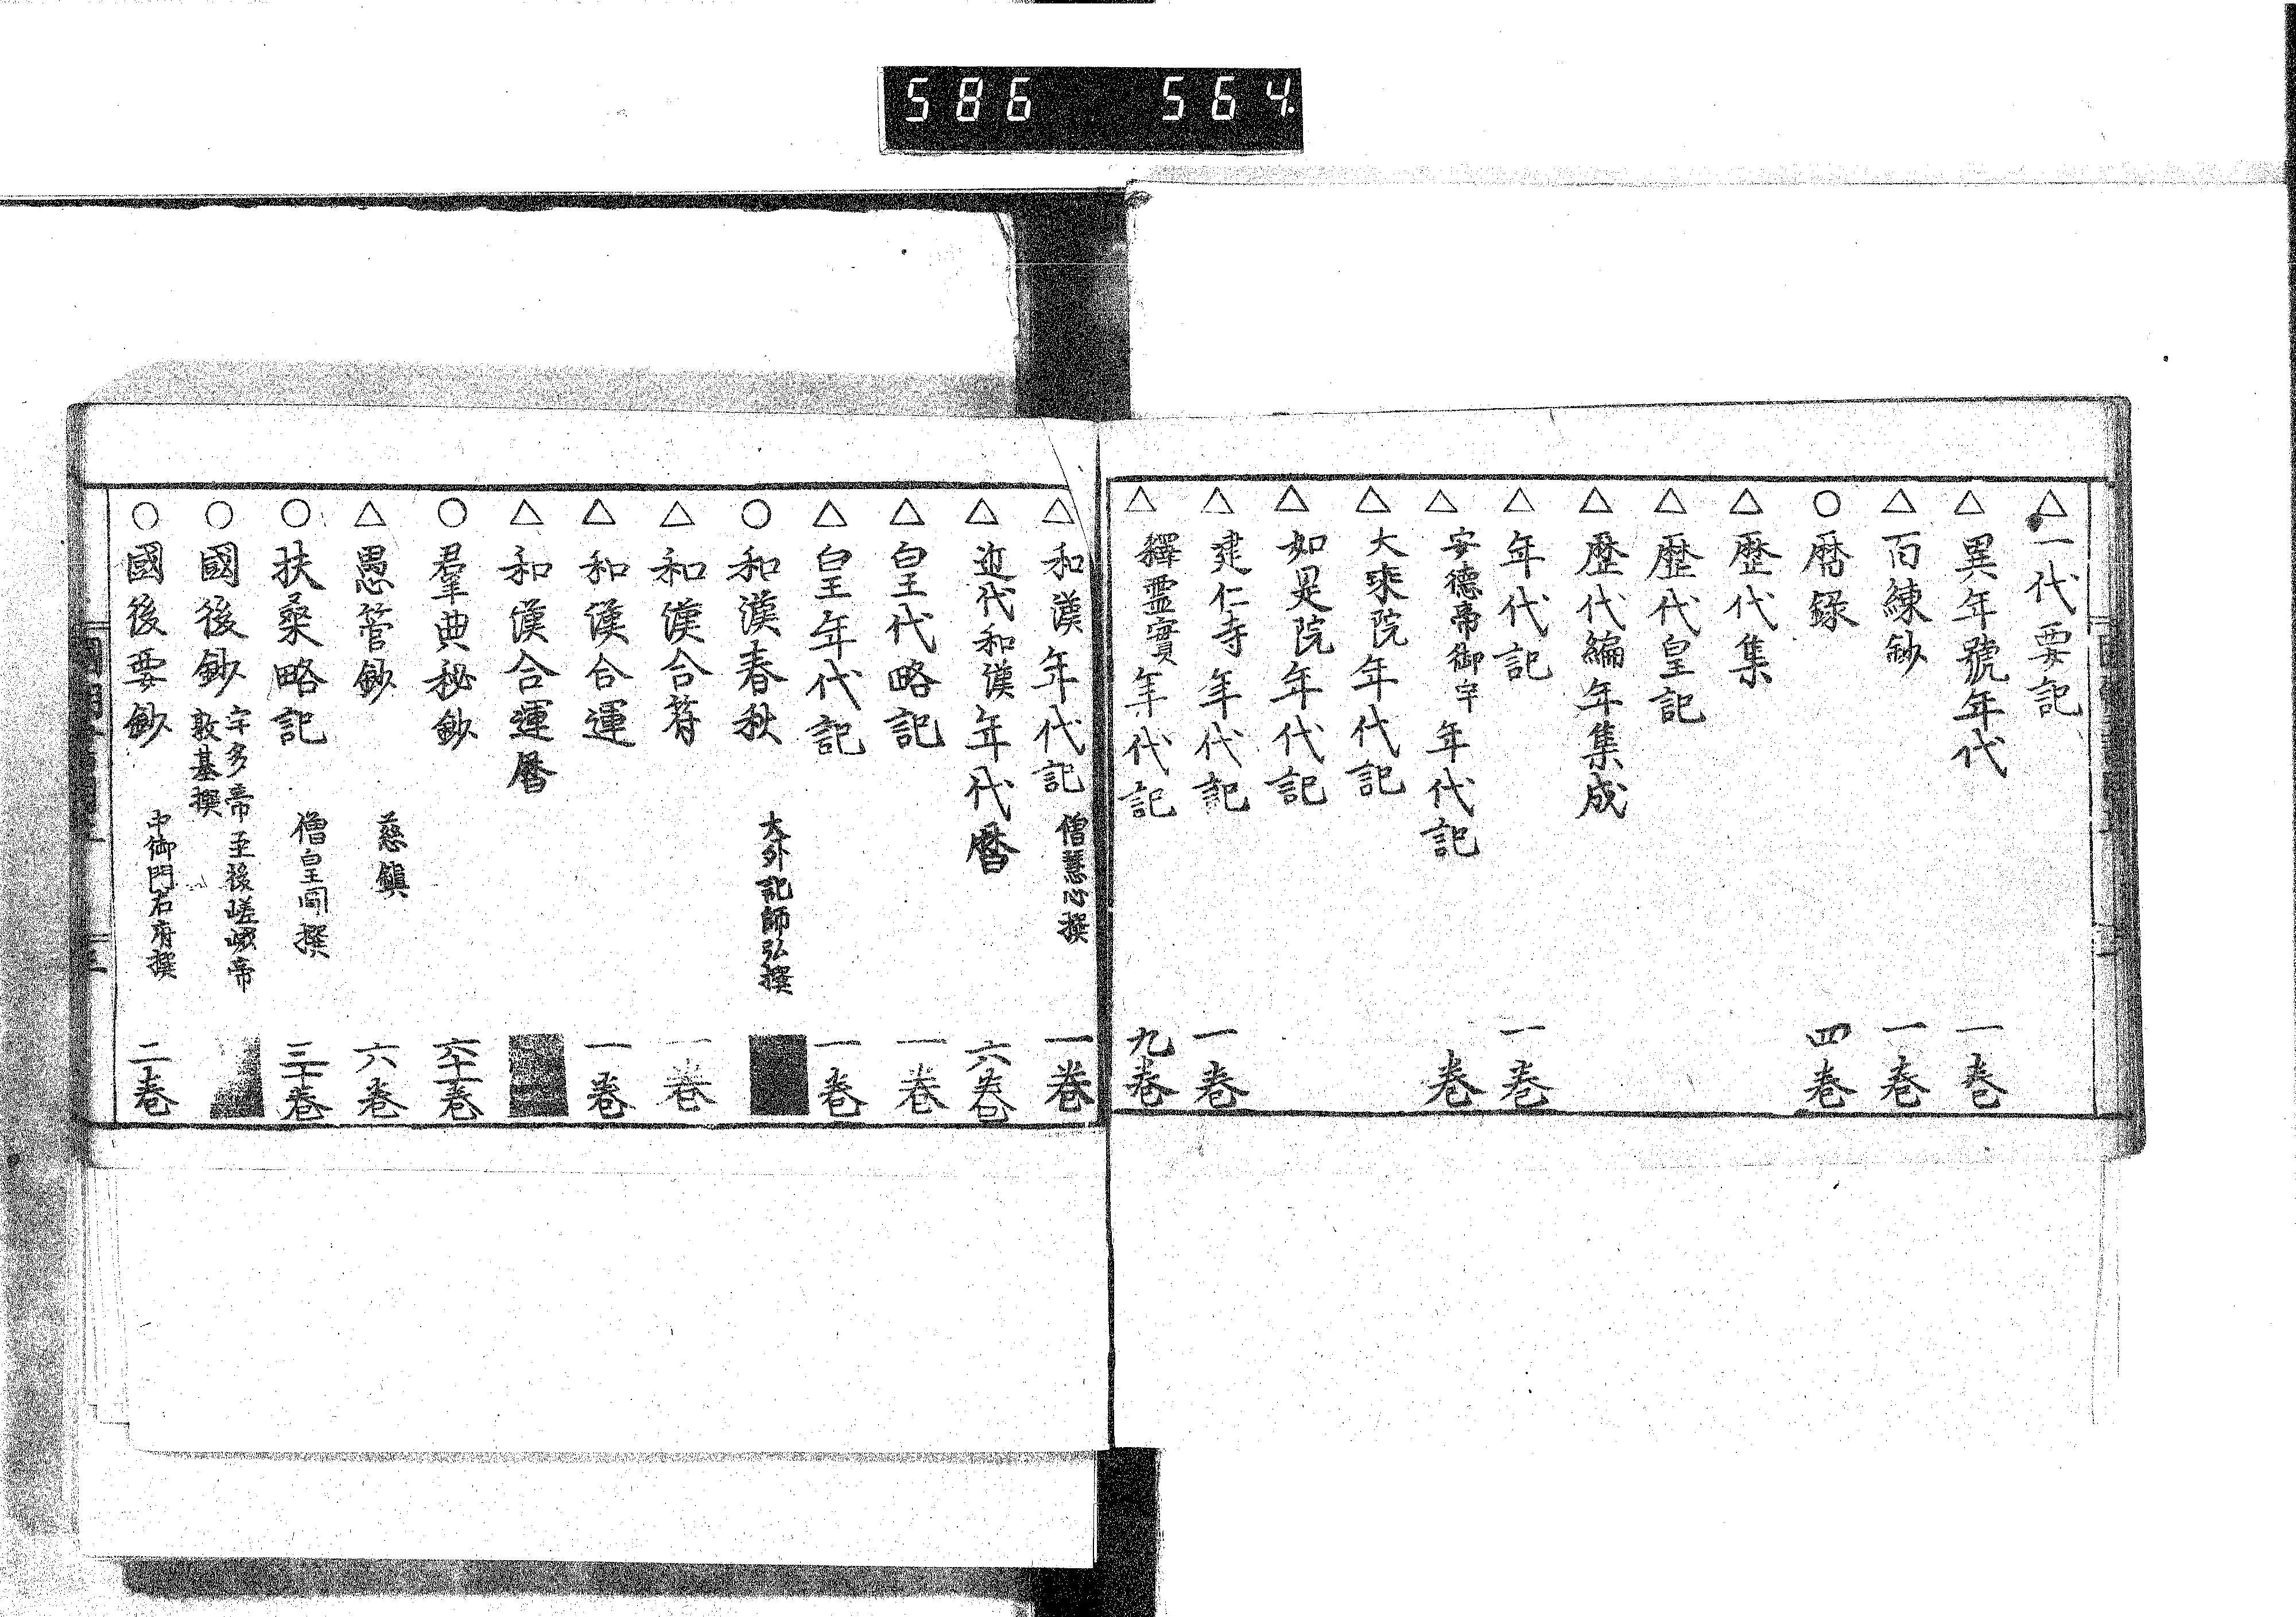 586 564.
△一代要記
△異年號年代 一卷
△百練鈔 一卷
○曆錄 四卷
△歷代集
△歷代皇記
△歷代編年集成
△年代記 一卷
△安德帝御宇年代記 卷
△大乘院年代記
△如是院年代記
△建仁寺年代記 一卷
△釋靈實年代記 九卷
△和漢年代記 僧慧心撰 一卷
△近代和漢年代曆 六卷
△皇代略記 一卷
△皇年代記 一卷
○和漢春秋 大外記師弘撰
△和漢合符 一卷
△和漢合運 一卷
△和漢合運曆
○羣典秘鈔 卷
△愚管鈔 慈鎮 六卷
○扶桑略記 僧皇圓撰 三十卷
○國後鈔 宇多帝至後嵯峨帝
敦基撰
○國後要鈔 中御門右府撰 二卷